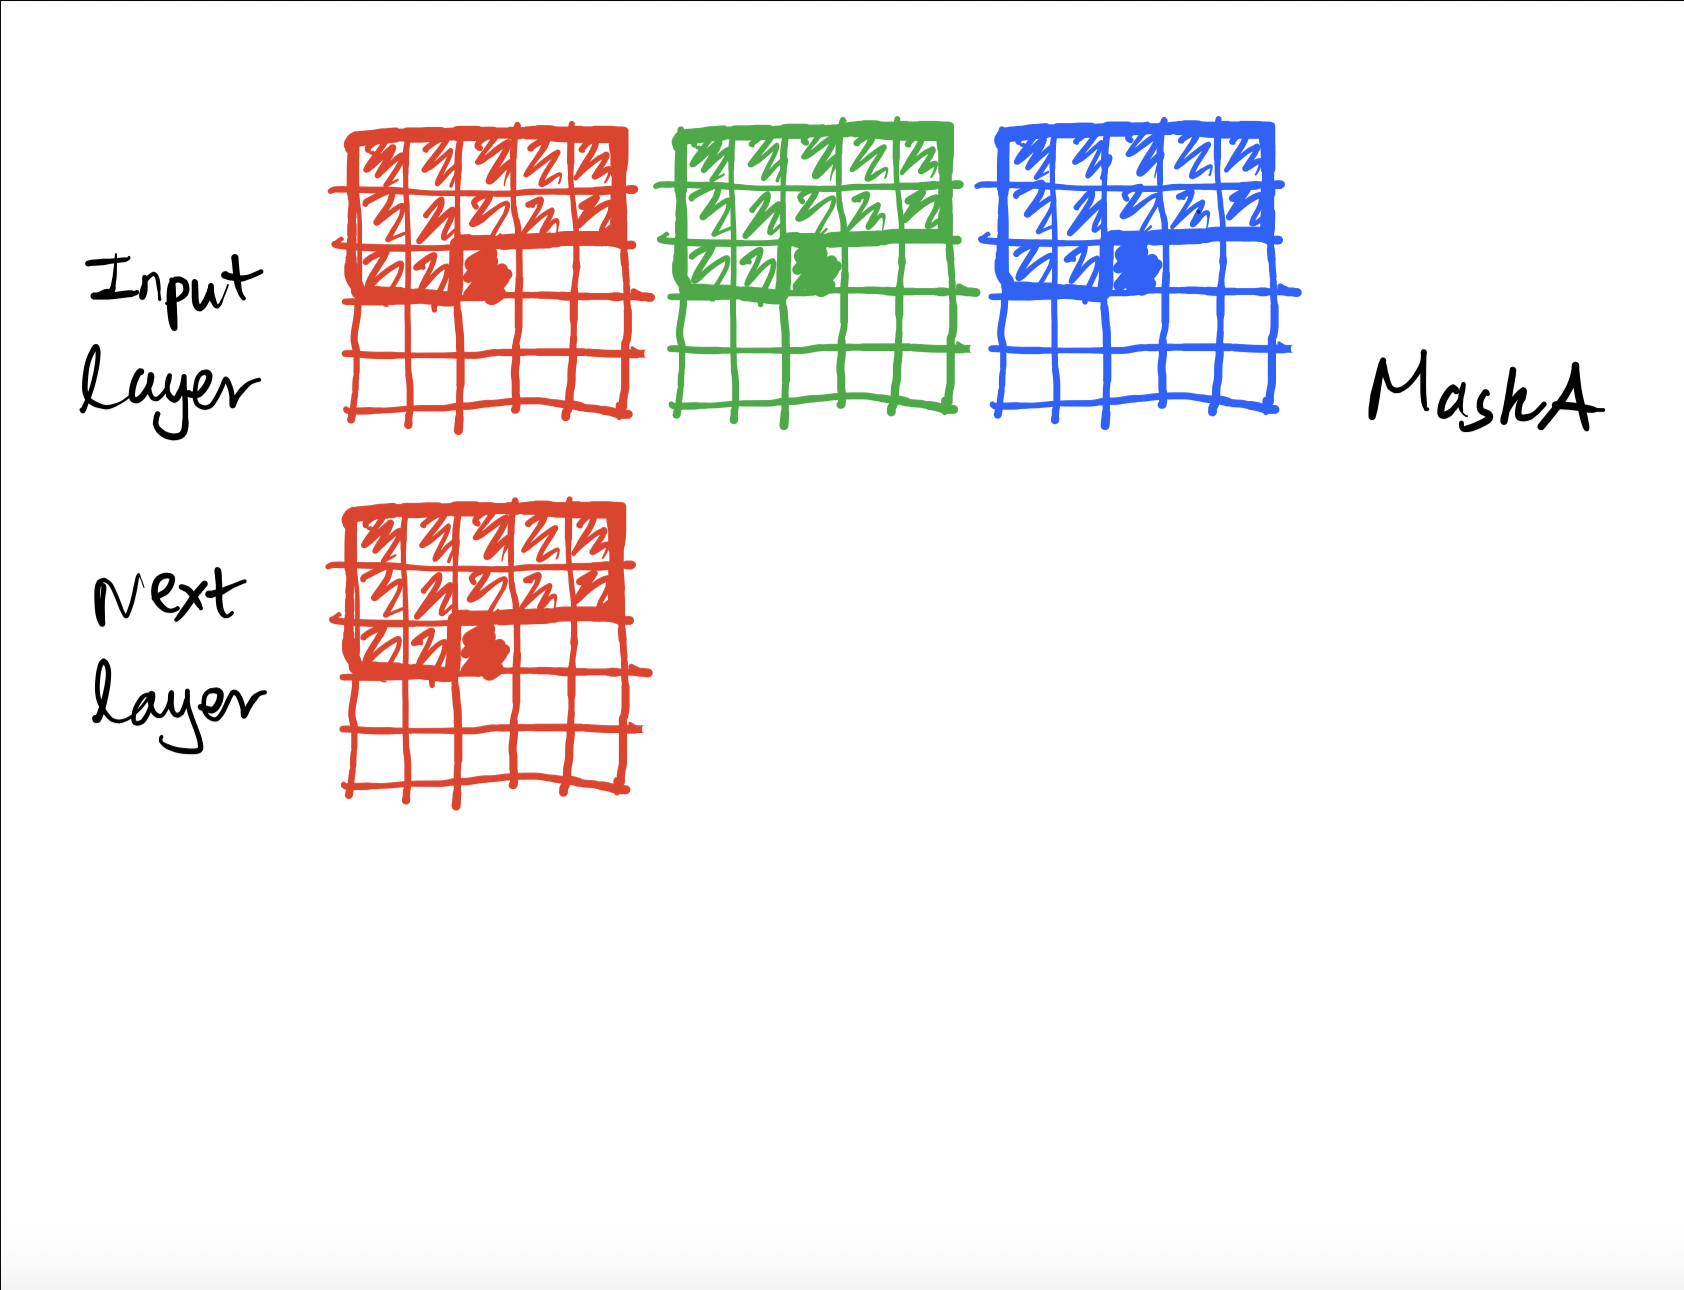 Input
layer
MaskA
Next
layer